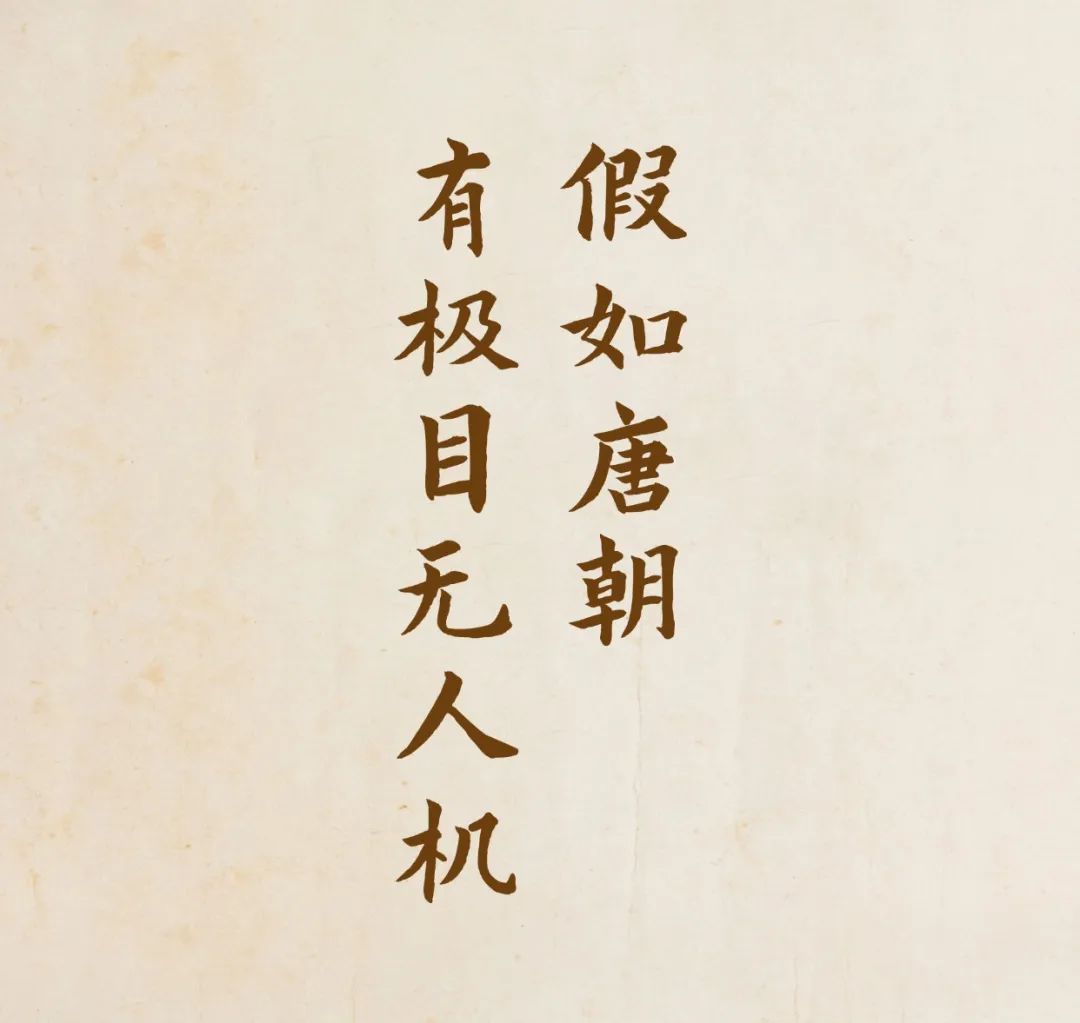 假如唐朝
有极目无人机